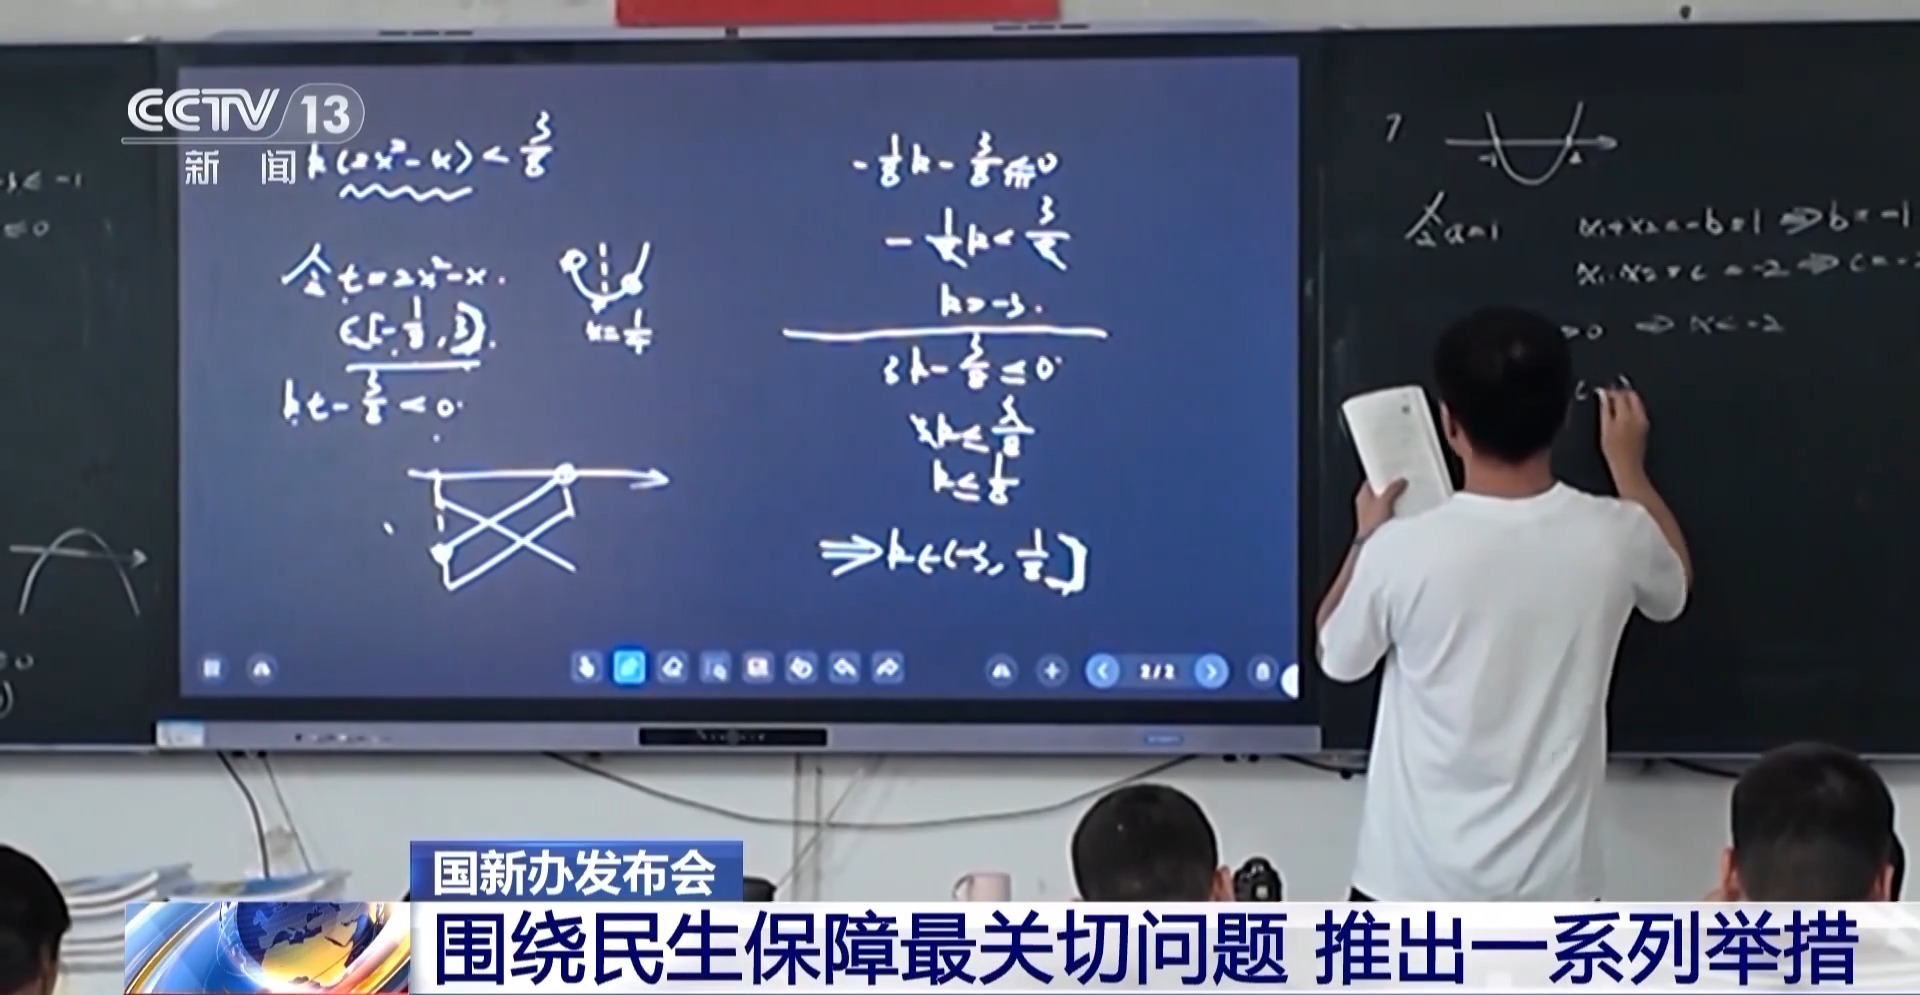 CCTV 13
新闻
k(2x²-x)<3/8
令t=2x²-x.
∈[-1/8,3).
kt-3/8<0.
x=1/4
-1/8k-3/8<0
-1/8k<3/8
k>-3.
3k-3/8≤0.
3k≤3/8
k≤1/8
⇒k∈(-3,1/8]
2/2
7
-1
2
令a=1
x₁+x₂=-b=1⇒b=-1
x₁·x₂=c=-2⇒c=-2
>0 ⇒x<-2
国新办发布会
围绕民生保障最关切问题 推出一系列举措